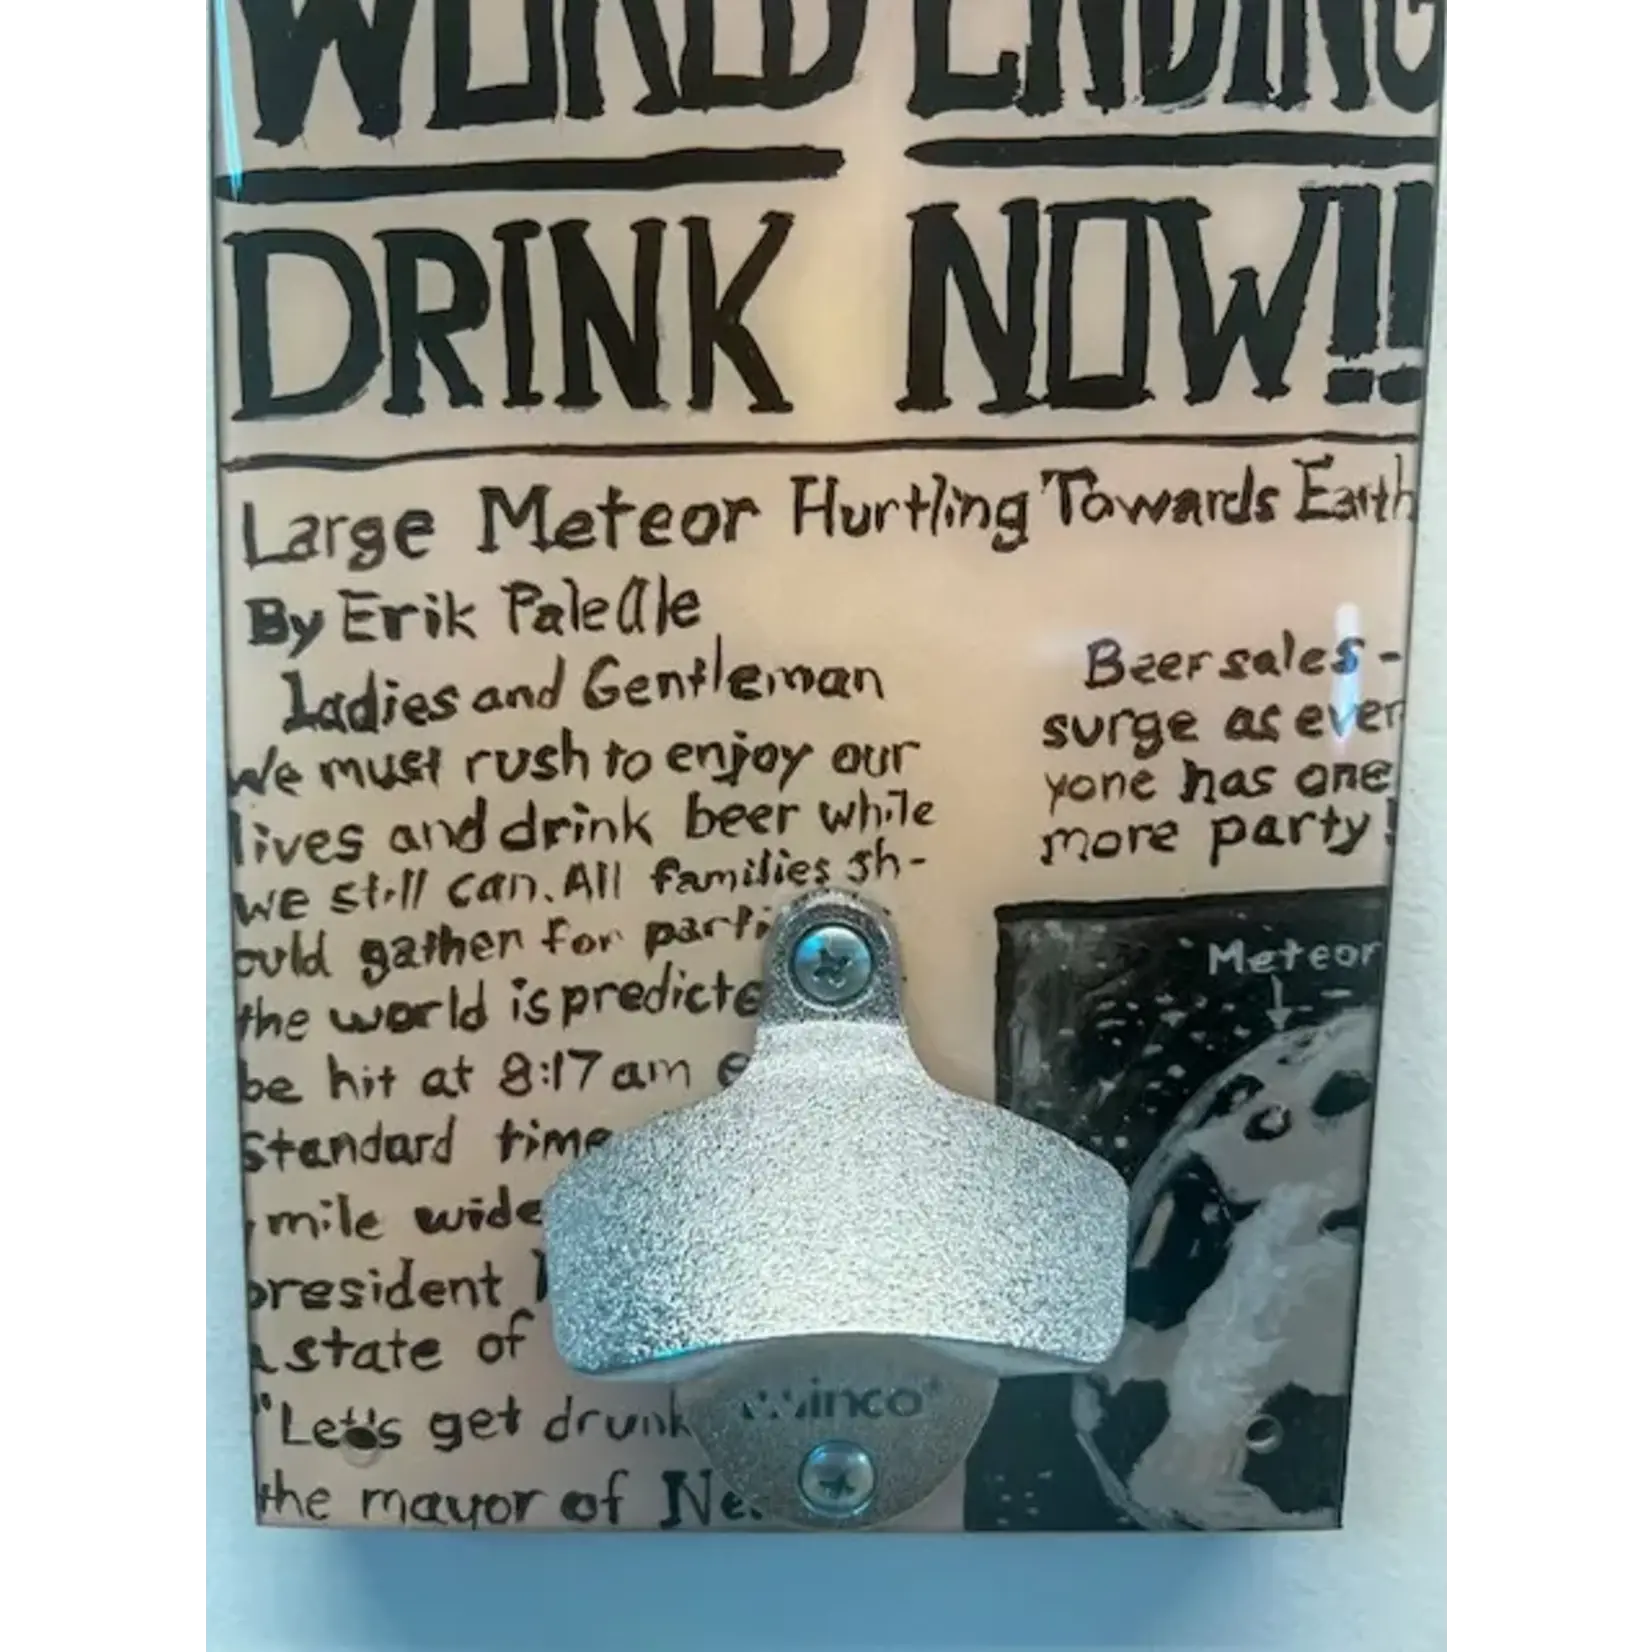 WORLD ENDING
DRINK NOW!!
Large Meteor Hurtling Towards Earth
By Erik PaleAle
Ladies and Gentleman
We must rush to enjoy our
lives and drink beer while
we still can. All families sh-
ould gather for
the world is
be hit at 8:17am
Standard time
mile wide
president
a state of
"Let's get drunk
the mayor of
Beer sales -
surge as ever
yone has one
more party!
Meteor
Winco